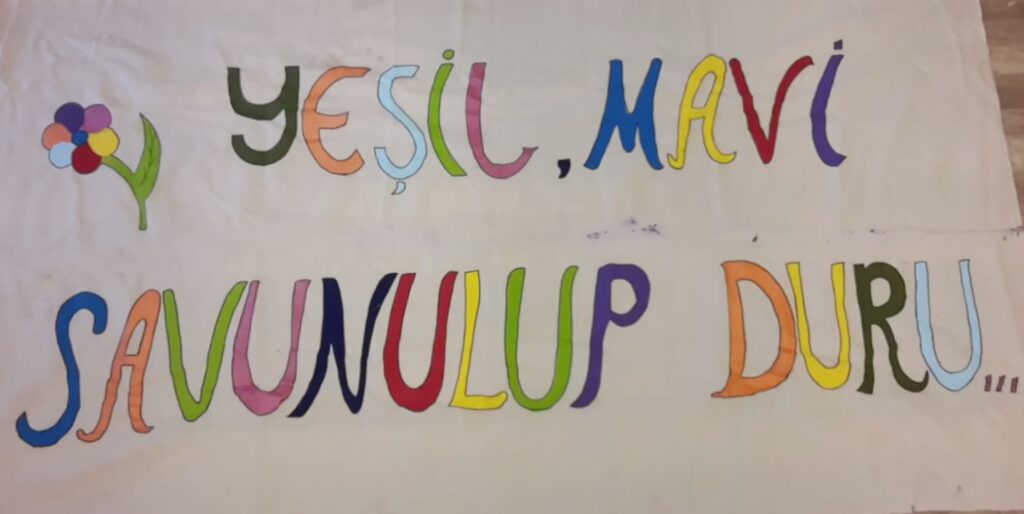 YEŞİL, MAVİ
SAVUNULUP DURU...